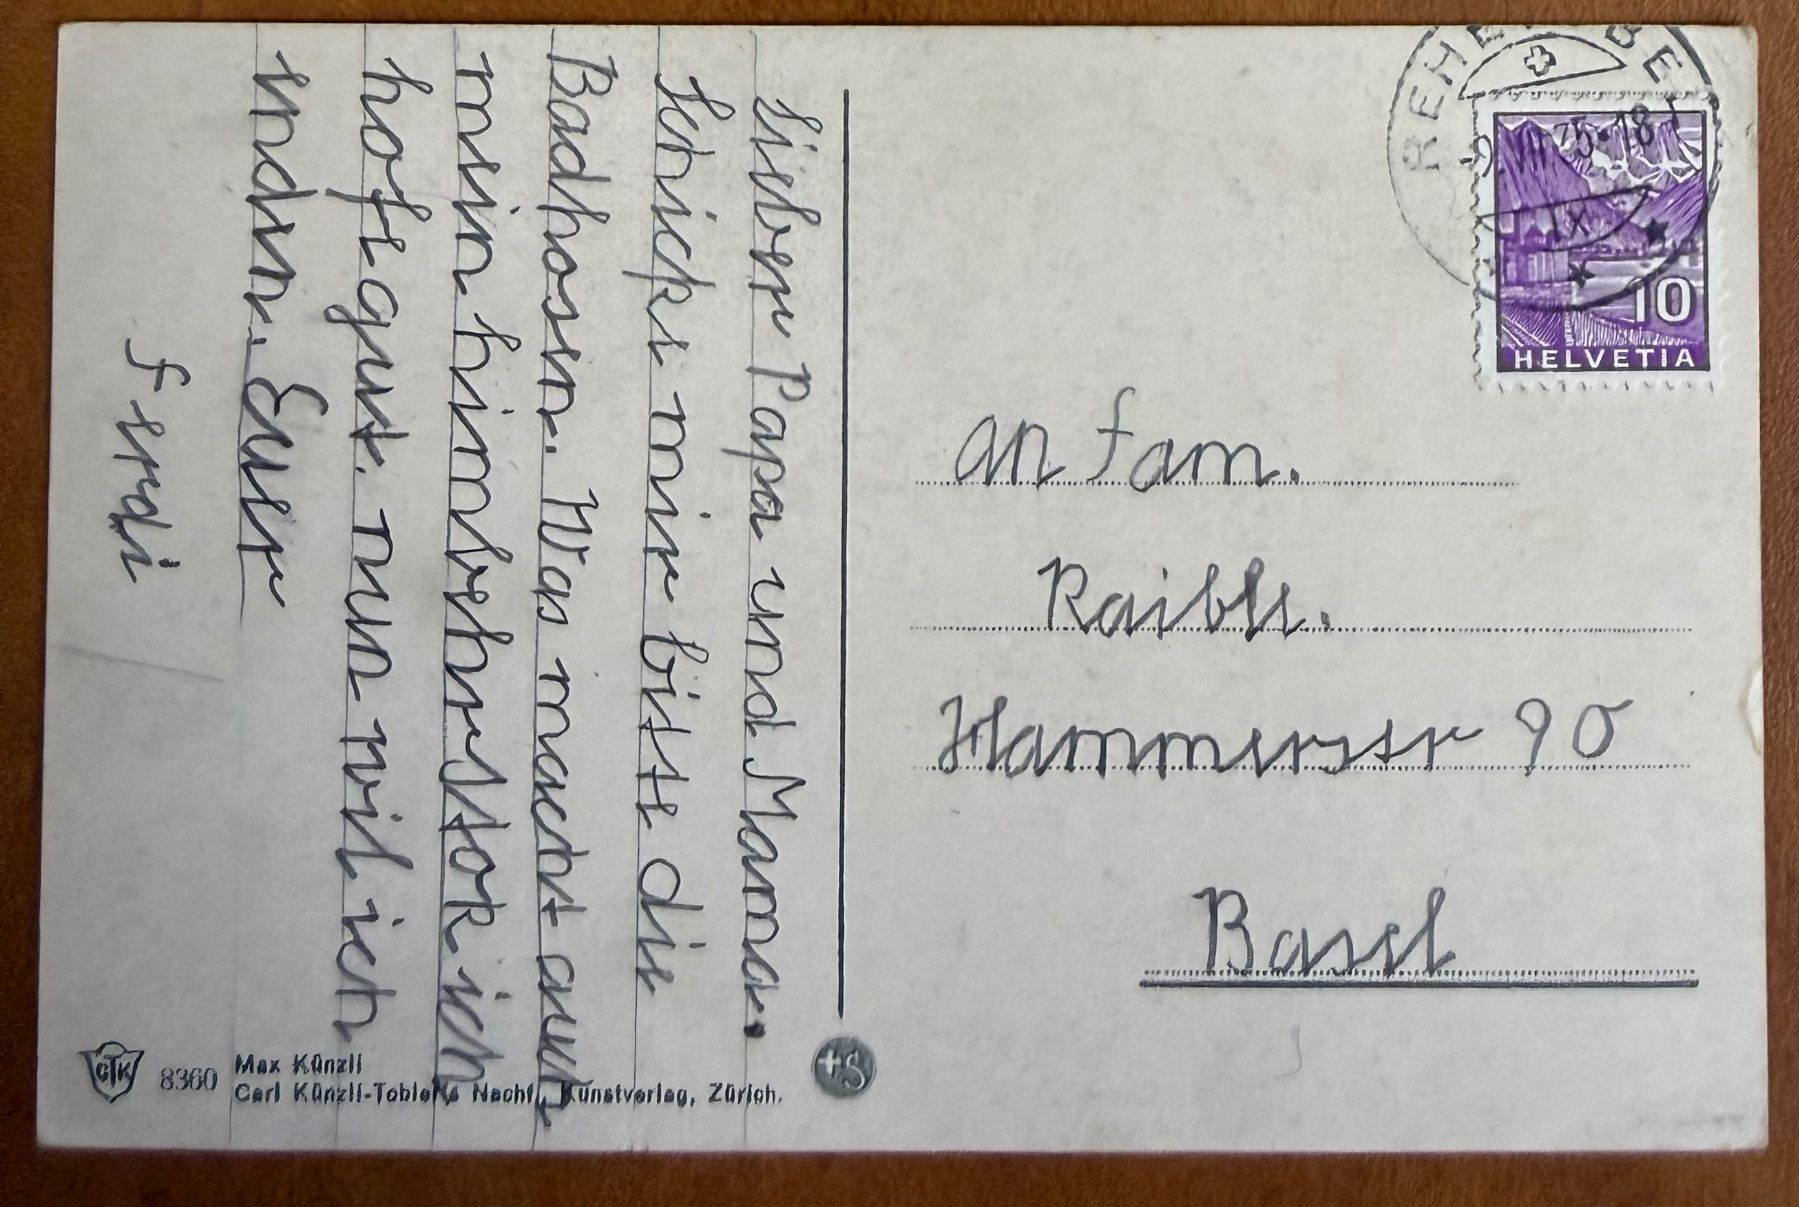 Lieber Papa und Mama.
Schicke mir bitte die
Badhosen. Was macht auch
mein himbehrerstok ich
hofe gut. nun wil ich
enden. Euer
Ferdi
an Fam.
Raible.
Hammerstr 90
Basel
VII 35-18
IX
10
HELVETIA
GTK 8360 Max Künzli
Carl Künzli-Tobler's Nachf., Kunstverlag, Zürich.
+S